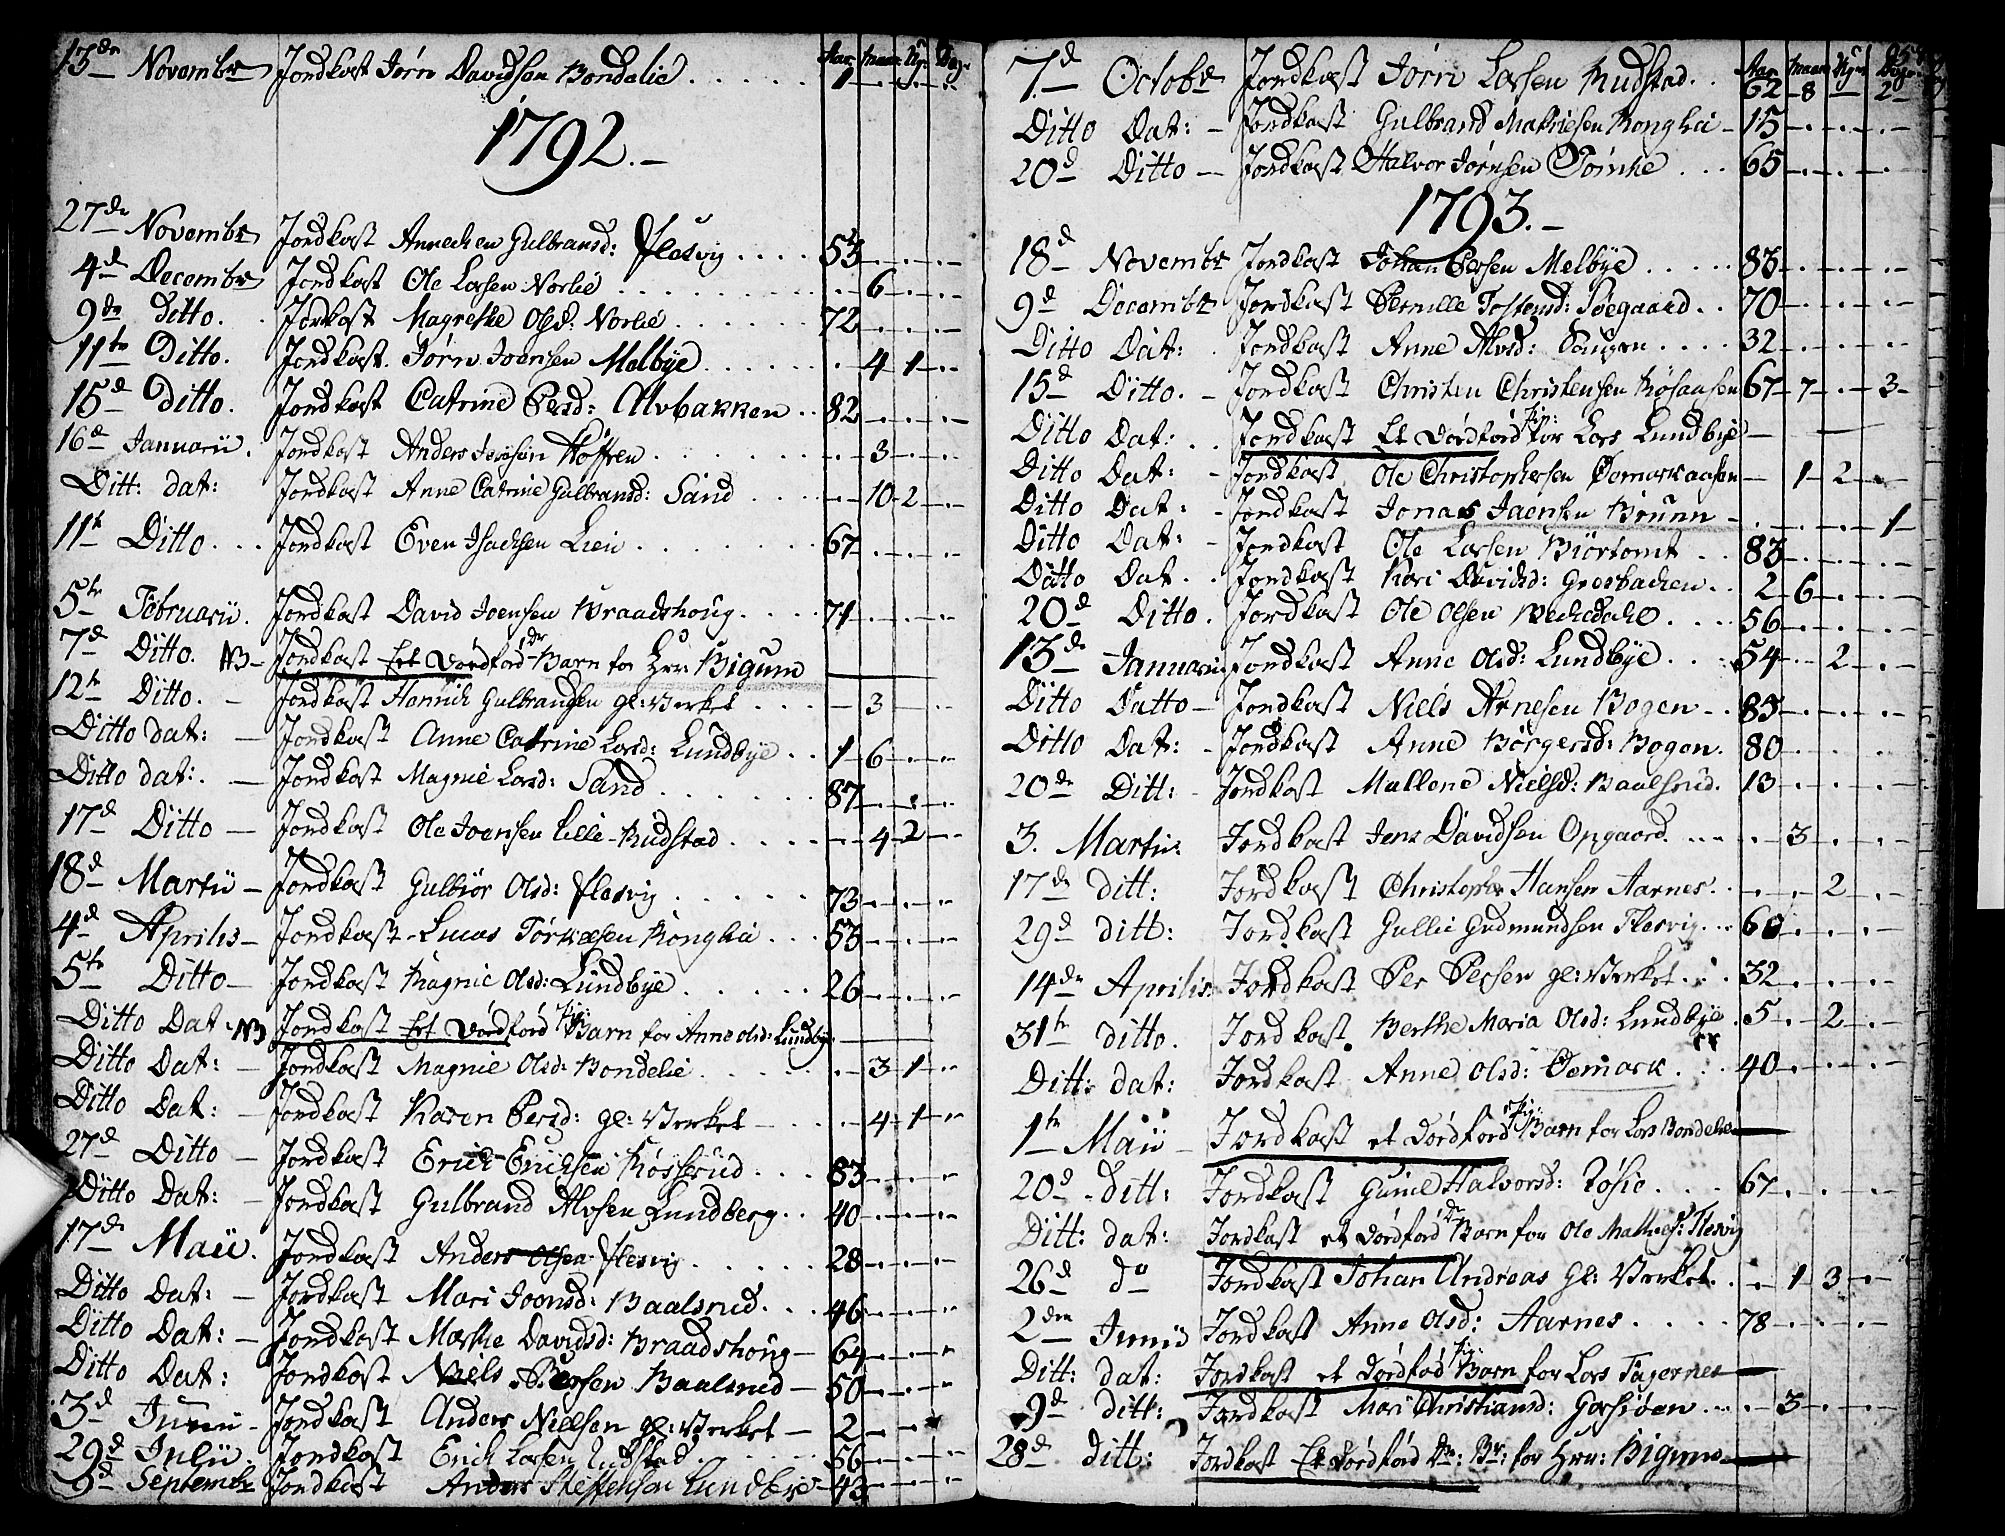 Aar Maan Ug: Dag:
13de Novembr Jordkast Jørn Davidsen Bondelie 1
1792.
27de Novembr Jordkast Annechen Gulbransd: Flesvig 53
4d Decembr Jordkast Ole Larsen Norlie 6
9de Ditto. Jordkast Magrethe Olsd: Norlie 72
11te Ditto. Jordkast Jørn Joensen Melbye 4 1
15d Ditto. Jordkast Catrine Persd: Alvbakken 82
16d Januarii. Jordkast Anders 3
Ditt: dat: Jordkast Anne Catrine Gulbransd: Sand 10 2
11t Ditto Jordkast Even Isachsen Lien 67
5te Februarii. Jordkast David Joensen Braadshoug 71
7d Ditto. NB Jordkast Et Dødfød Dr Barn for Hrr: Bigum
12t Ditto. Jordkast Henrich Gulbrandsen gl: Verket 3
Ditto dat: Jordkast Anne Catrine Larsd: Lundbye 1 6
Ditto dat: Jordkast Magnie Larsd: Sand 87
17d Ditto Jordkast Ole Joensen Lille-Rudstad 4 2
18d Martii Jordkast Gulbiør Olsd: Flesvig 73
4d Aprilis Jordkast Lucas Ronglia 53
5te Ditto Jordkast Ragnie Olsd: Lundbye 26
Ditto Dat. NB Jordkast Et Dødfød Pig: Barn for Anne Olsd: Lundby:
Ditto Dat: Jordkast Magnie Olsd: Bondelie 3 1
Ditto Dat: Jordkast Karen Persd: gl: Verket 4 1
27d Ditto Jordkast Erich Erichsen Kosserud 83
Ditto Dat: Jordkast Gulbrand Alvsen Lundberg 40
17de Maii. Jordkast Anders Olsen Flesvig 28
Ditto Dat: Jordkast Mari Joensd: Baalsrud 46
Ditto Dat: Jordkast Marthe Davidsd: Braadshoug 64
Ditto Dat: Jordkast Niels Persen Baalsrud 50
3d Junii Jordkast Anders Nielsen gl: Verket 2
29d Julii. Jordkast Erich Larsen Rudstad 56
9d Septembr Jordkast Anders Steffensen Lundbye 43
Aar Maan Ug: Dage
7d Octobr Jordkast Jørn Larsen Rudstad 62 8 2
Ditto Dat: Jordkast Gulbrand Mathiesen Ronglia 15
20d Ditto Jordkast Halvor Jørnsen Tørnhe 65
1793.
18d Novembr Jordkast Johan Persen Melbye 83
9d Decembr Jordkast Pernille Tostensd: Søegaard 70
Ditto Dat: Jordkast Anne Alvsd: 32
15d Ditto. Jordkast Christen Christensen Kosaasen 67 7 3
Ditto Dat: Jordkast Et Dødfød Pig: for Lars Lundbye
Ditto Dat: Jordkast Ole Christophersen Ødemarkaasen 1 2
Ditto Dat: Jordkast Jonas Joensen Brunn 1
Ditto Dat: Jordkast Ole Larsen Biørtomt 83
Ditto Dat. Jordkast Kari Davidsd: Gresbachen 2 6
20d Ditto. Jordkast Ole Olsen 56
13de Januarii Jordkast Anne Olsd: Lundbye 54 2
Ditto Datto Jordkast Niels Arnesen Bogen 83
Ditto Dat: Jordkast Anne Børgersd: Bogen 80
20de Ditt: Jordkast Mallene Nielsd: Baalsrud 13
3. Martii Jordkast Jens Davidsen Opgaard 3
17de Ditt: Jordkast Christopher Hansen Aarnes 2
29d Ditt: Jordkast Gullie Gudmundsen Flesvig 60
14de Aprilis Jordkast Per Persen gl: Verket 32
31te Ditto. Jordkast Berthe Maria Olsd: Lundbye 5 2
Ditt: dat: Jordkast Anne Olsd: Ødemark 40
1te Maii Jordkast et Dødfød Pig: Barn for Lars Bondelie
20d Ditt: Jordkast Gunie Halvorsd: 67
Ditt: dat: Jordkast et Dødfød Dr Barn for Ole Mathies: Flesvig
26d do Jordkast Johan Andreas gl: Verket 1 3
2den Junii Jordkast Anne Olsd: Aarnes 78
Ditt: dat: Jordkast et Dødfød Pig: Barn for Lars Fagernes
9d Ditt: Jordkast Mari Christiansd: 3
28d Ditt: Jordkast Et Dødfød Dr: Br: for Hrr: Bigum